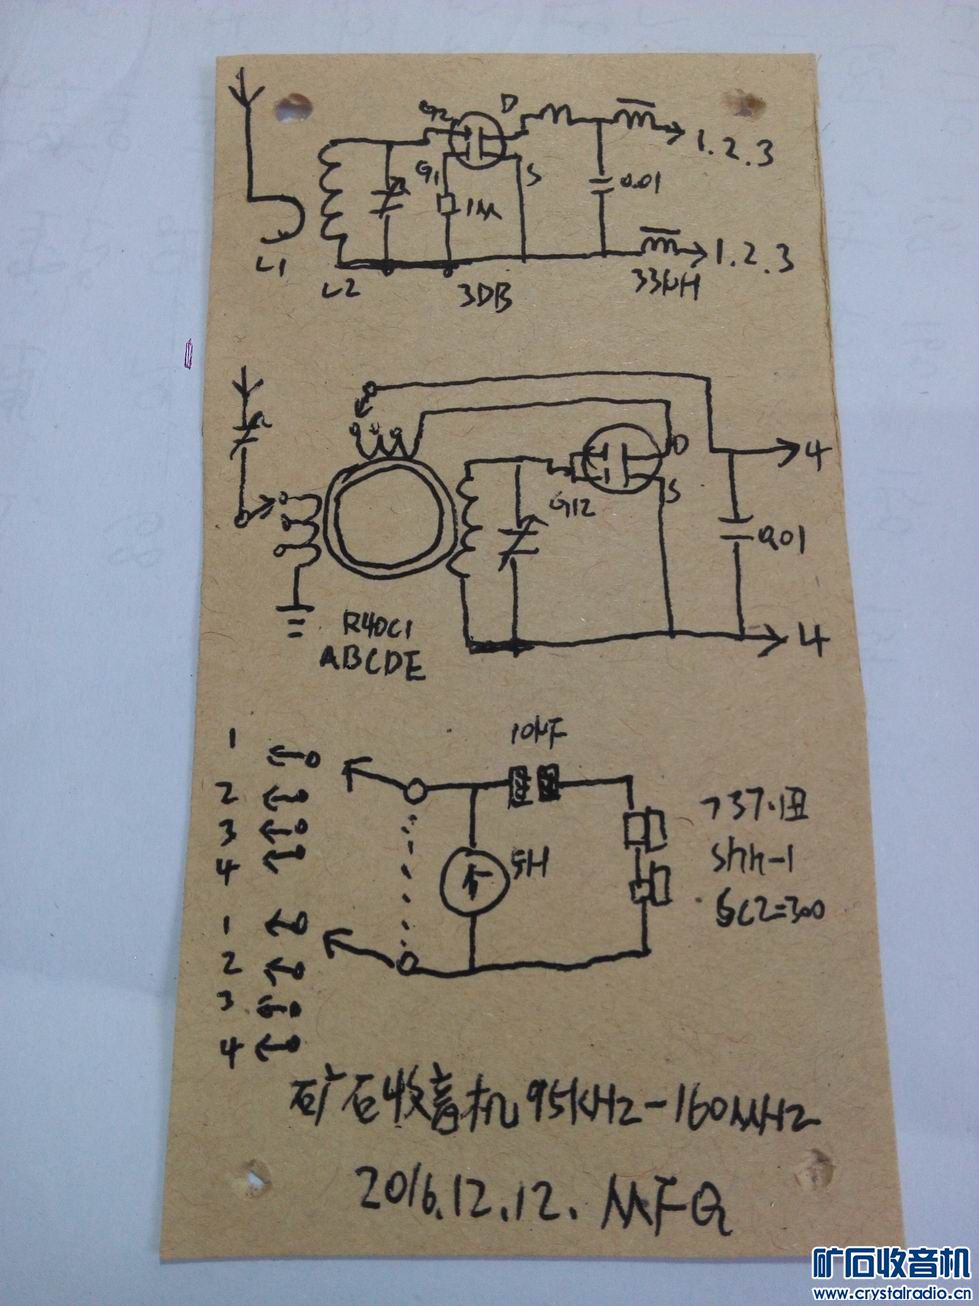 G2
D
1.2.3
G1
1M
S
0.01
L1
L2
3DB
33μH
1.2.3
D
4
G12
S
0.01
R40C1
ABCDE
4
10μF
1
2
3
4
5H
737·丑
shh-1
1
2
3
4
矿石收音机 95KHz-160MHz
2016.12.12. MFQ
矿石收音机
www.crystalradio.cn